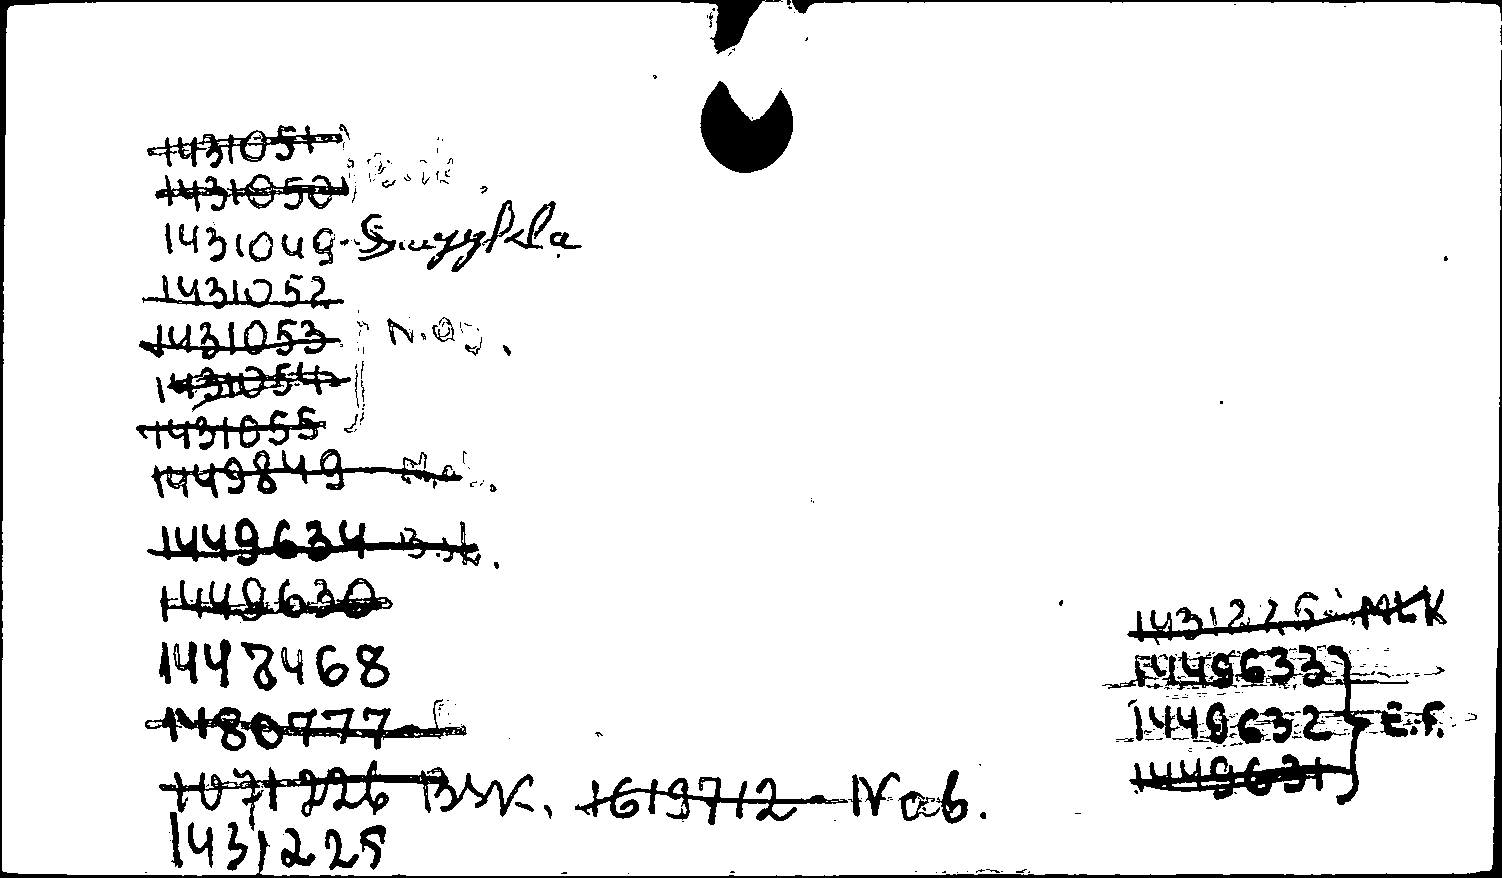 1431051
1431050
1431049
1431052
1431053
1431054
1431055
1449849
1449634
1449630
1447468
1480777
1071226 1619712 - Nab.
1431225
1431225 MLK
1449633
1449632 E.F.
1449631